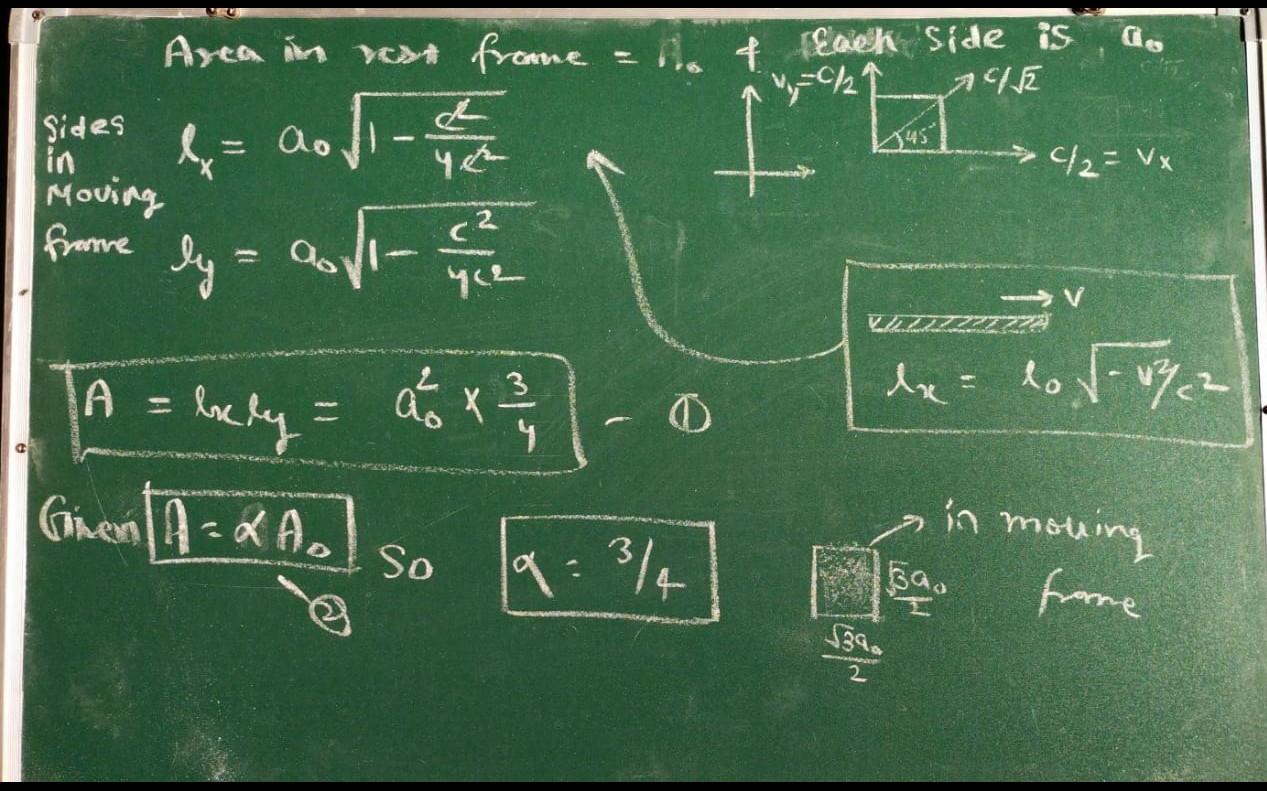 Area in rest frame = A₀ & Each Side is a₀
Sides in Moving frame
lₓ = a₀ √(1 - c²/4c²)
l_y = a₀ √(1 - c²/4c²)
v_y = c/2
c/√2
45°
c/2 = vₓ
→ v
lₓ = l₀ √(- v²/c²)
A = lₓ l_y = a₀² × 3/4 - ①
Given A = α A₀ ②
So α = 3/4
→ in moving frame
√3a₀/2
√3a₀/2